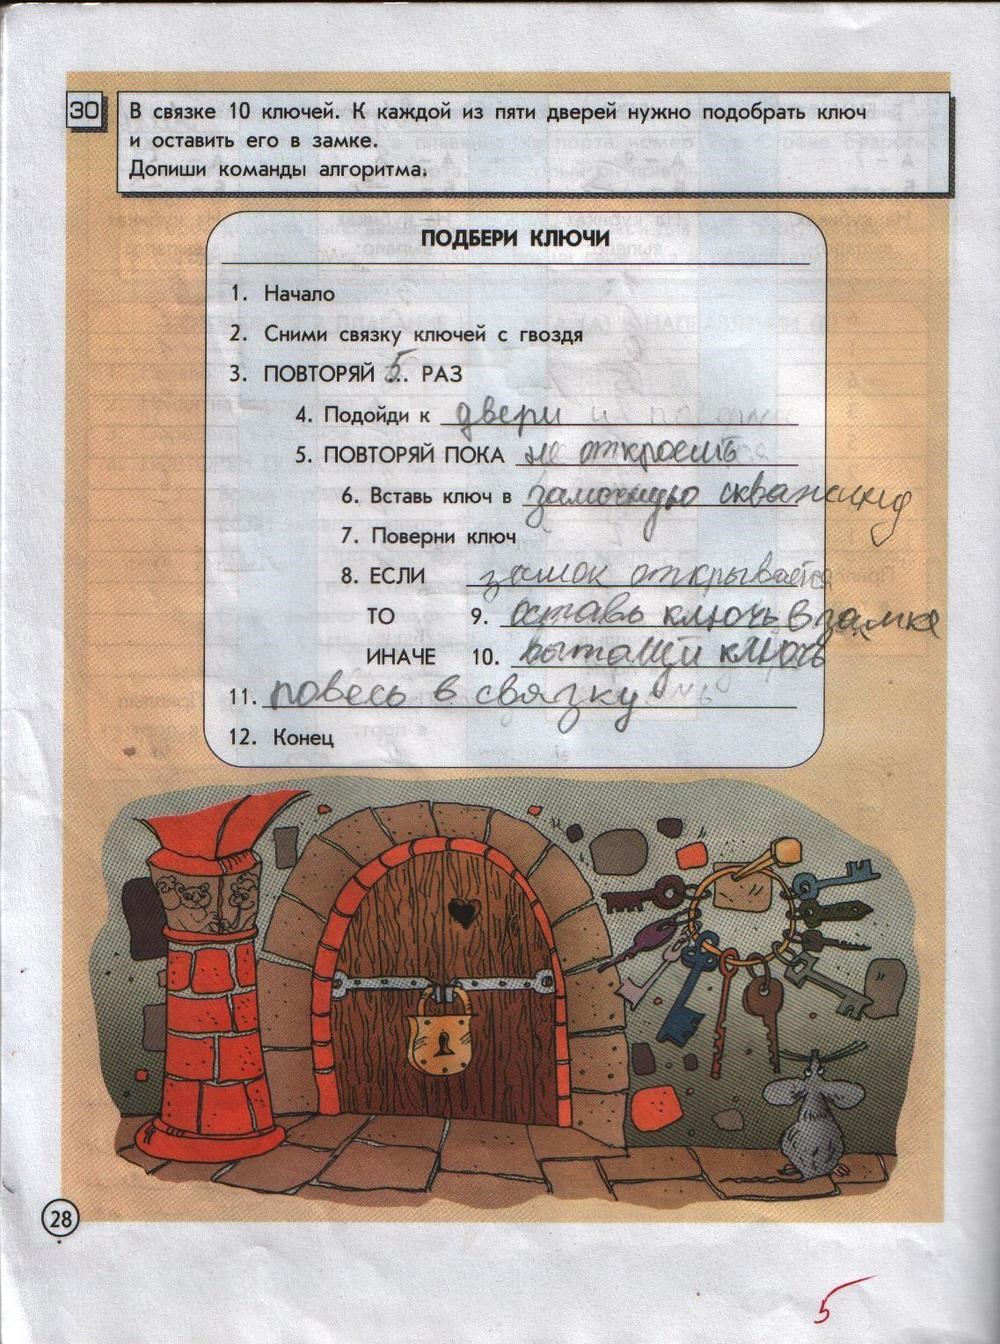 30
В связке 10 ключей. К каждой из пяти дверей нужно подобрать ключ
и оставить его в замке.
Допиши команды алгоритма.
ПОДБЕРИ КЛЮЧИ
1. Начало
2. Сними связку ключей с гвоздя
3. ПОВТОРЯЙ 5 РАЗ
4. Подойди к двери
5. ПОВТОРЯЙ ПОКА не откроешь
6. Вставь ключ в замочную скважину
7. Поверни ключ
8. ЕСЛИ замок открывается
ТО 9. оставь ключь в замке
ИНАЧЕ 10. вытащи ключь
11. повесь в связку
12. Конец
28
5